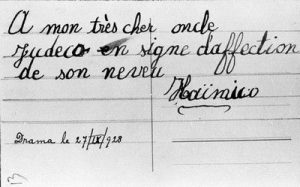 A mon très cher oncle
Judeco en signe daffection
de son neveu
Haïmico
Drama le 27/IX/928
13